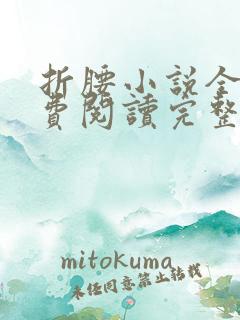 折腰小說全
費閱讀完整
mitokuma
未经同意禁止转载